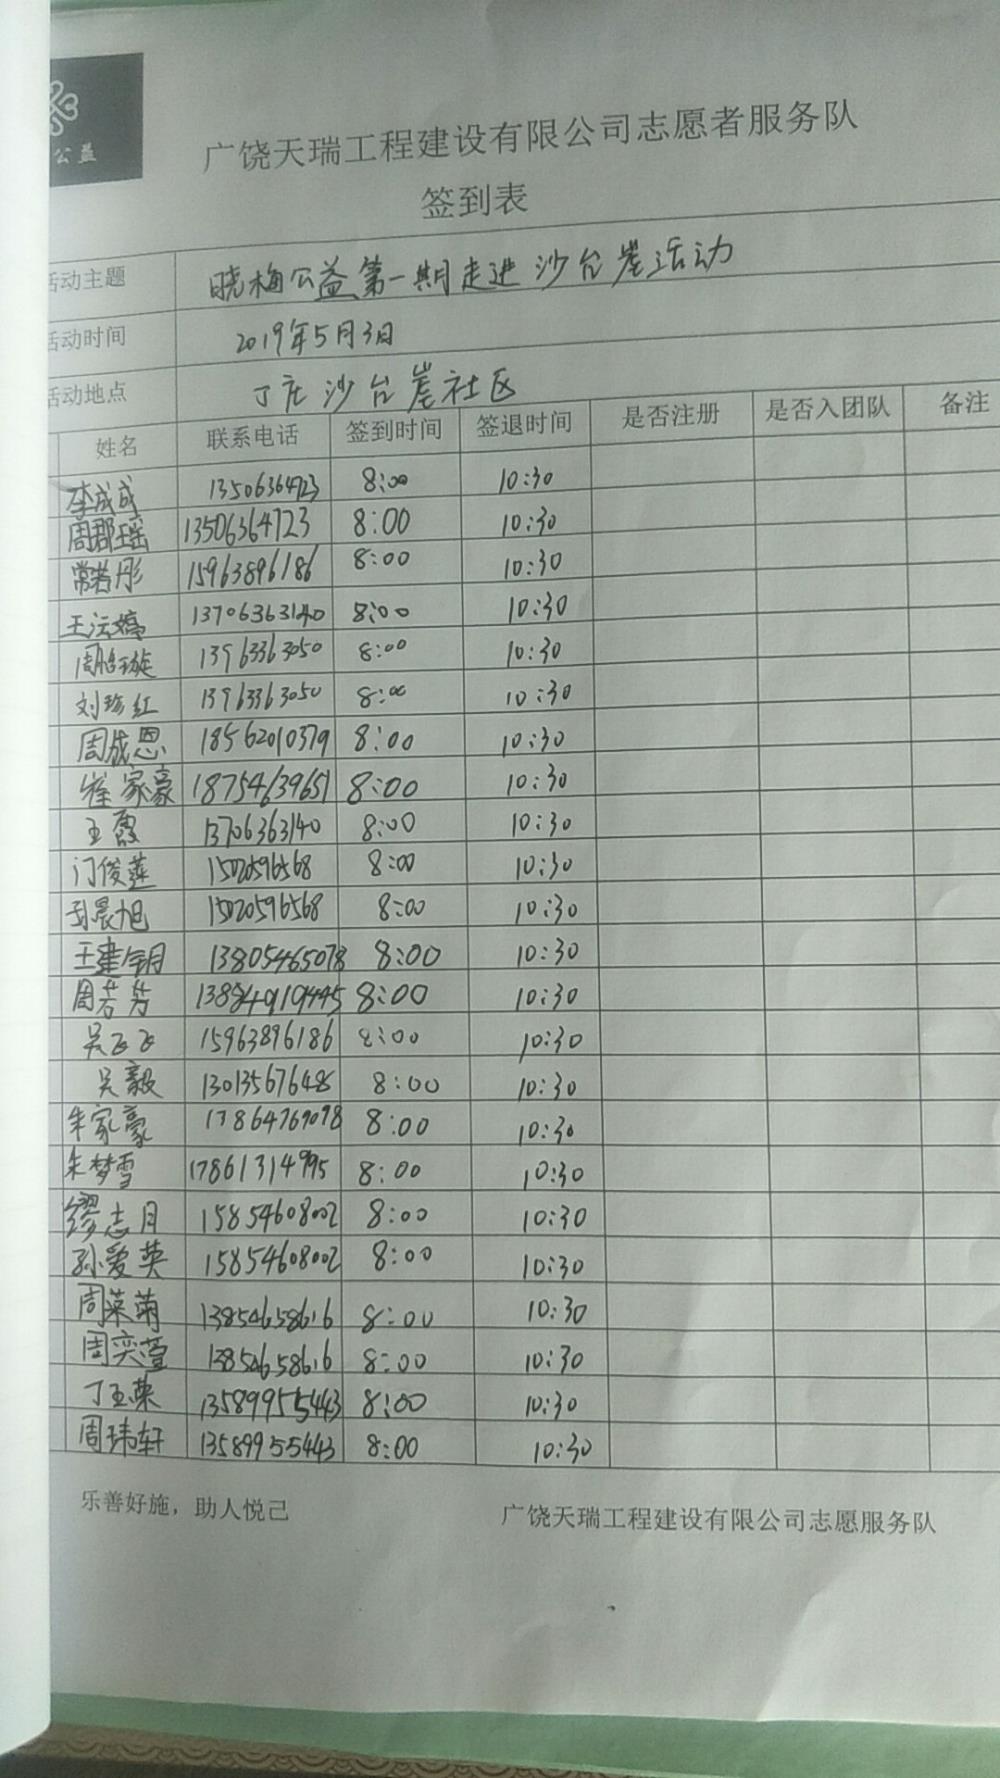 公益
广饶天瑞工程建设有限公司志愿者服务队
签到表
活动主题 晓梅公益第一期走进沙台崖活动
活动时间 2019年5月3日
活动地点 丁庄沙台崖社区
姓名 联系电话 签到时间 签退时间 是否注册 是否入团队 备注
李成成 13506364723 8:00 10:30
周郡瑶 13506364723 8:00 10:30
常若彤 15963896186 8:00 10:30
王沄婷 13706363140 8:00 10:30
周怡璇 13963363050 8:00 10:30
刘珍红 13963363050 8:00 10:30
周成恩 18562010379 8:00 10:30
崔家豪 18754639651 8:00 10:30
王霞 13706363140 8:00 10:30
门俊莲 15020596568 8:00 10:30
孙晨旭 15020596568 8:00 10:30
王建钥 13805465078 8:00 10:30
周芳芳 8:00 10:30
吴飞飞 15963896186 8:00 10:30
吴毅 13013567648 8:00 10:30
朱家豪 17864769098 8:00 10:30
朱梦雪 17861314995 8:00 10:30
缪志月 15854608002 8:00 10:30
孙爱英 15854608002 8:00 10:30
周菜菊 13854658616 8:00 10:30
周奕萱 13854658616 8:00 10:30
丁玉荣 13589955443 8:00 10:30
周玮轩 13589955443 8:00 10:30
乐善好施，助人悦己 广饶天瑞工程建设有限公司志愿服务队